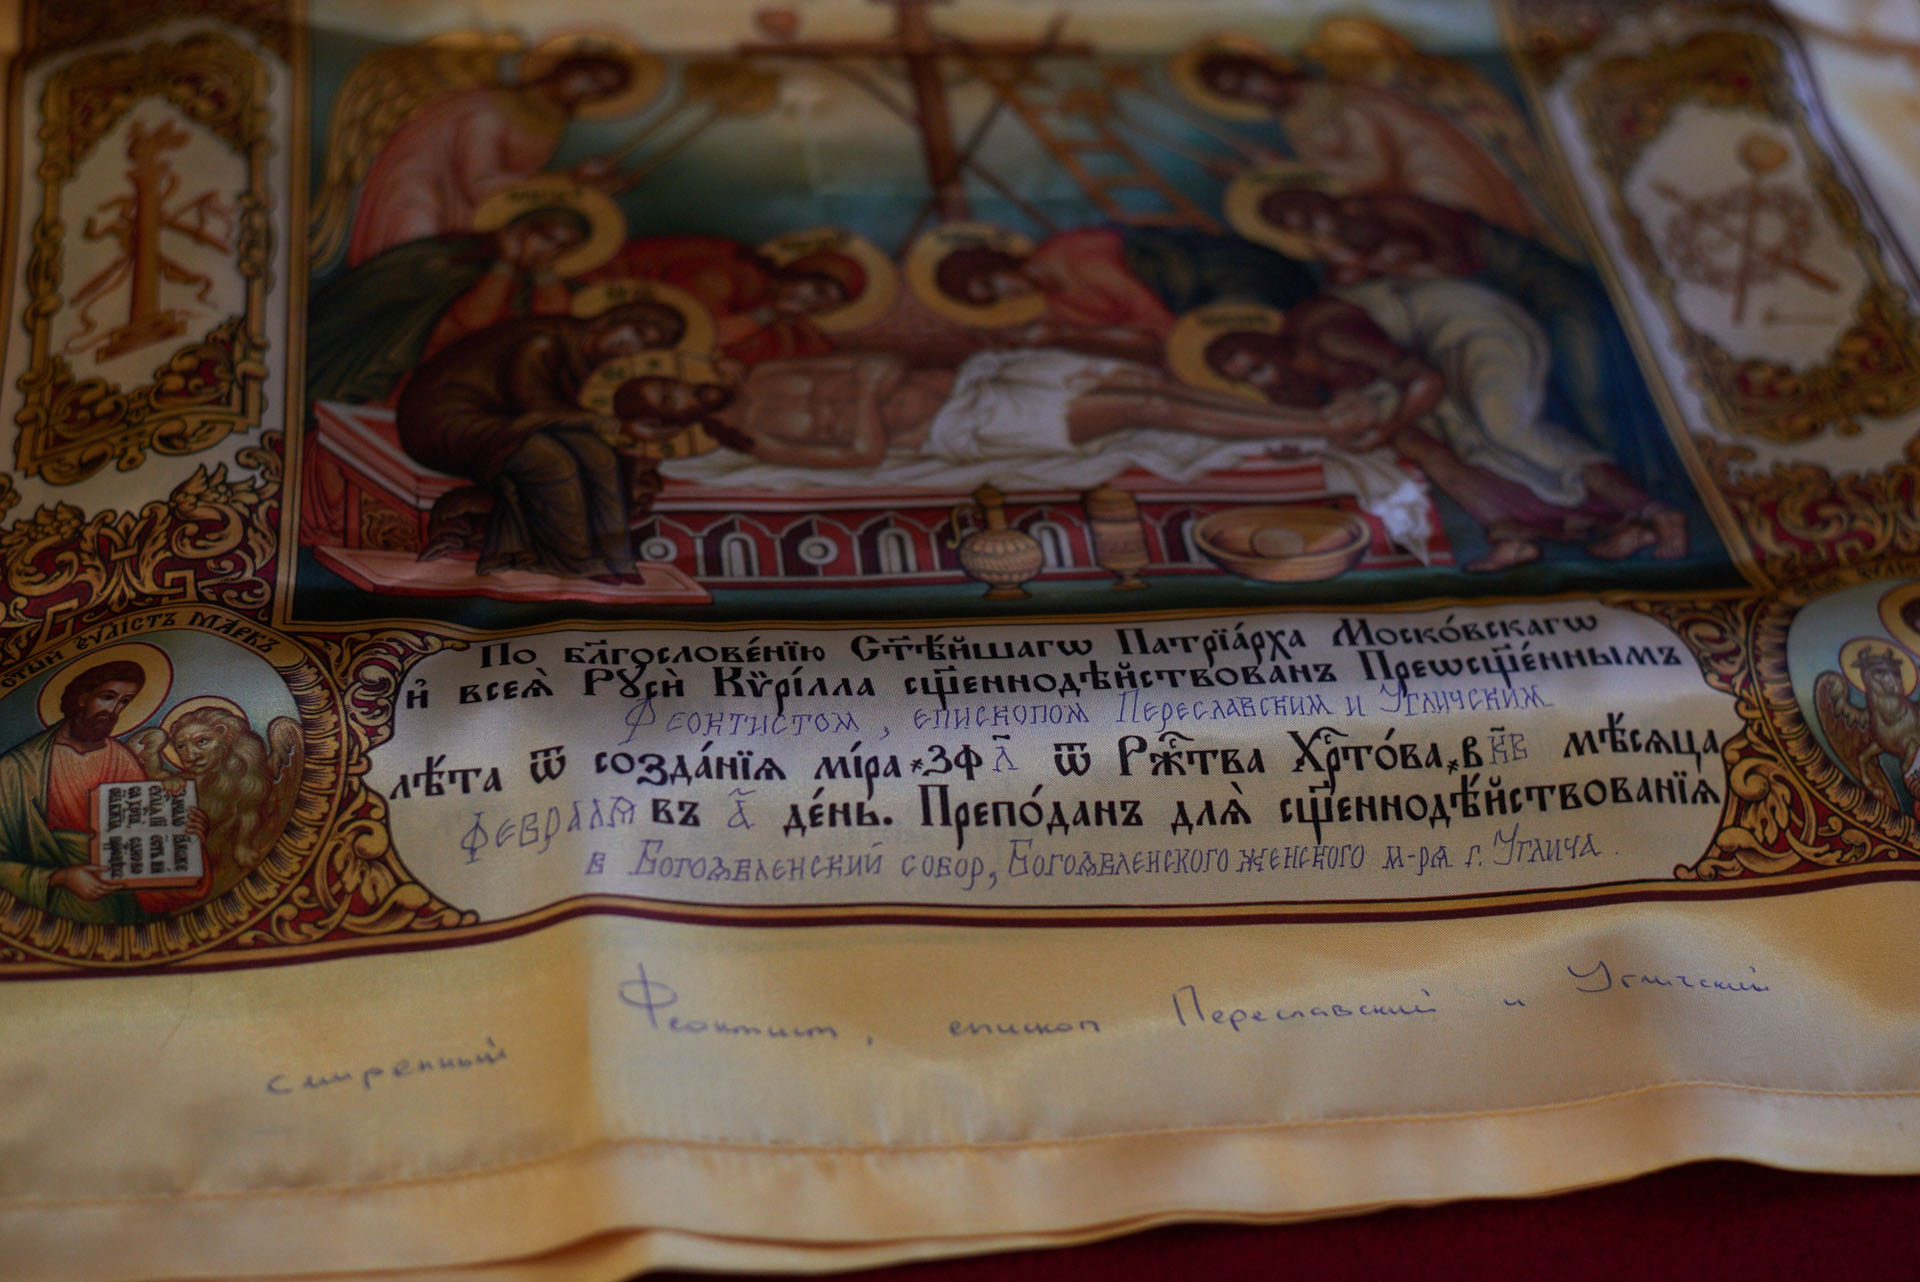 СТЫЙ ЕѴЛІСТЪ МАРКЪ
По блгⷭ҇ловенїю Ст҃ѣ́йшагѡ Патрїа́рха Моско́вскагѡ
и҆ всеѧ̀ Рꙋсѝ Кѷрі́лла сщ҃еннодѣ́йствованъ Преѡсщ҃е́ннымъ
Феоктистом, епископом Переславским и Угличским
лѣ́та ѿ созда́нїѧ мі́ра ҂зфл҃ ѿ Ржⷭ҇тва̀ Хрⷭ҇то́ва ҂вк҃в мѣ́сѧца
февралѧ въ а҃ де́нь. Препо́данъ длѧ̀ сщ҃еннодѣ́йствованїѧ
в Богоѧвленский собор, Богоѧвленского женского м-рѧ г. Углича.
смиренный Феоктист, епископ Переславский и Угличский